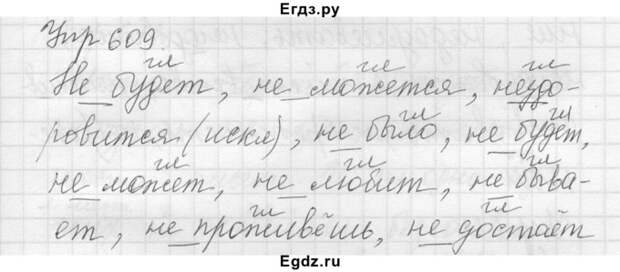 Егдз.ру
Упр 609.
гл гл гл
Не будет, не можется, нездо-
гл гл
ровится (искл), не было, не будет,
гл гл гл
не может, не любит, не быва-
гл гл
ет, не проживёшь, не достаёт
Egdz.ru